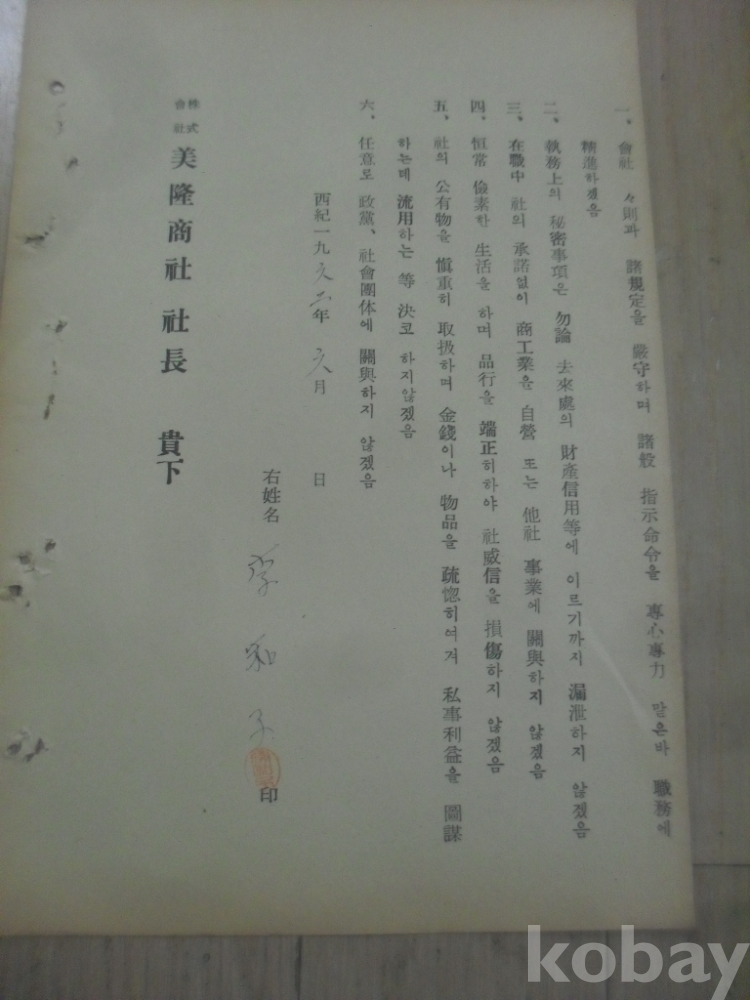 一、會社 々則과 諸規定을 嚴守하며 諸般 指示命令을 專心專力 맡은바 職務에
精進하겠음
二、執務上의 秘密事項은 勿論 去來處의 財產信用等에 이르기까지 漏泄하지 않겠음
三、在職中 社의 承諾없이 商工業을 自營 또는 他社 事業에 關與하지 않겠음
四、恒常 儉素한 生活을 하며 品行을 端正히하야 社威信을 損傷하지 않겠음
五、社의 公有物을 愼重히 取扱하며 金錢이나 物品을 疏惚히여겨 私事利益을 圖謀
하는데 流用하는 等 決코 하지않겠음
六、任意로 政黨、社會團体에 關與하지 않겠음
西紀一九六二年 六月 日
右姓名 李和子 印
株式會社 美隆商社 社長 貴下
kobay